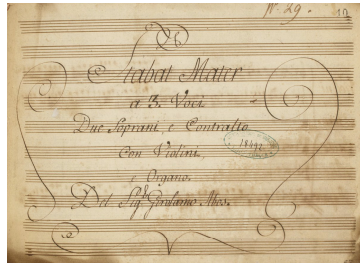 N.º 29. 10
Stabat Mater
a 3. Voci
Due Soprani, e Contralto
Con Violini,
e Organo.
Del Sig.r Girolamo Abos.
18392